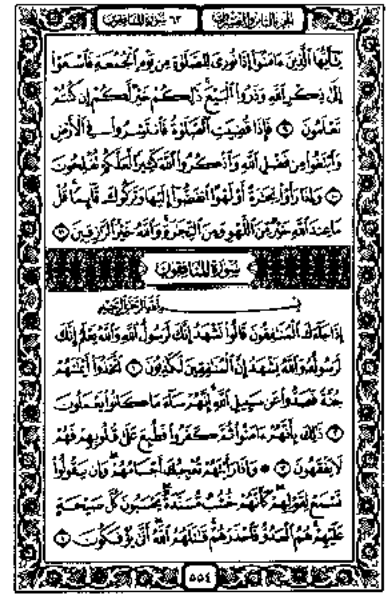 الجزء الثامن والعشرون
٦٣ سورة المنافقون
يَٰٓأَيُّهَا ٱلَّذِينَ ءَامَنُوٓا۟ إِذَا نُودِىَ لِلصَّلَوٰةِ مِن يَوْمِ ٱلْجُمُعَةِ فَٱسْعَوْا۟
إِلَىٰ ذِكْرِ ٱللَّهِ وَذَرُوا۟ ٱلْبَيْعَ ۚ ذَٰلِكُمْ خَيْرٌ لَّكُمْ إِن كُنتُمْ
تَعْلَمُونَ ٩ فَإِذَا قُضِيَتِ ٱلصَّلَوٰةُ فَٱنتَشِرُوا۟ فِى ٱلْأَرْضِ
وَٱبْتَغُوا۟ مِن فَضْلِ ٱللَّهِ وَٱذْكُرُوا۟ ٱللَّهَ كَثِيرًا لَّعَلَّكُمْ تُفْلِحُونَ
١٠ وَإِذَا رَأَوْا۟ تِجَٰرَةً أَوْ لَهْوًا ٱنفَضُّوٓا۟ إِلَيْهَا وَتَرَكُوكَ قَآئِمًا ۚ قُلْ
مَا عِندَ ٱللَّهِ خَيْرٌ مِّنَ ٱللَّهْوِ وَمِنَ ٱلتِّجَٰرَةِ ۚ وَٱللَّهُ خَيْرُ ٱلرَّٰزِقِينَ ١١
سُورَةُ المُنَافِقُونَ
بِسْمِ ٱللَّهِ ٱلرَّحْمَٰنِ ٱلرَّحِيمِ
إِذَا جَآءَكَ ٱلْمُنَٰفِقُونَ قَالُوا۟ نَشْهَدُ إِنَّكَ لَرَسُولُ ٱللَّهِ ۗ وَٱللَّهُ يَعْلَمُ إِنَّكَ
لَرَسُولُهُۥ وَٱللَّهُ يَشْهَدُ إِنَّ ٱلْمُنَٰفِقِينَ لَكَٰذِبُونَ ١ ٱتَّخَذُوٓا۟ أَيْمَٰنَهُمْ
جُنَّةً فَصَدُّوا۟ عَن سَبِيلِ ٱللَّهِ ۚ إِنَّهُمْ سَآءَ مَا كَانُوا۟ يَعْمَلُونَ
٢ ذَٰلِكَ بِأَنَّهُمْ ءَامَنُوا۟ ثُمَّ كَفَرُوا۟ فَطُبِعَ عَلَىٰ قُلُوبِهِمْ فَهُمْ
لَا يَفْقَهُونَ ٣ ۞ وَإِذَا رَأَيْتَهُمْ تُعْجِبُكَ أَجْسَامُهُمْ ۖ وَإِن يَقُولُوا۟
تَسْمَعْ لِقَوْلِهِمْ ۖ كَأَنَّهُمْ خُشُبٌ مُّسَنَّدَةٌ ۖ يَحْسَبُونَ كُلَّ صَيْحَةٍ
عَلَيْهِمْ ۚ هُمُ ٱلْعَدُوُّ فَٱحْذَرْهُمْ ۚ قَٰتَلَهُمُ ٱللَّهُ ۖ أَنَّىٰ يُؤْفَكُونَ ٤
٥٥٤